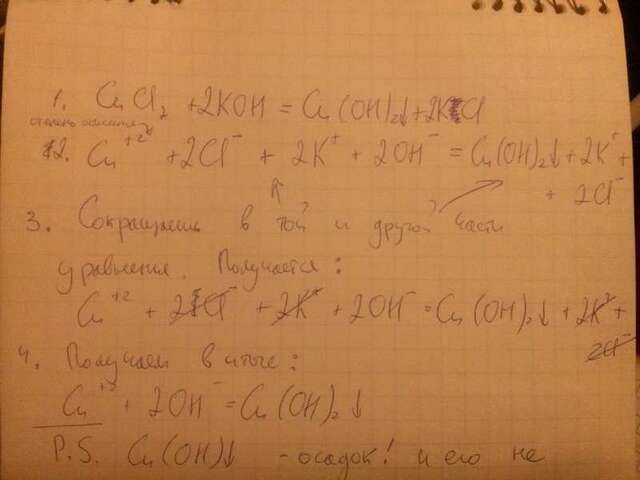 1. CuCl₂ + 2KOH = Cu(OH)₂↓ + 2KCl
степень окисления
2. Cu⁺² + 2Cl⁻ + 2K⁺ + 2OH⁻ = Cu(OH)₂↓ + 2K⁺ +
+ 2Cl⁻
3. Сокращаешь в той и другой части
уравнения. Получается:
Cu⁺² + 2Cl⁻ + 2K⁺ + 2OH⁻ = Cu(OH)₂↓ + 2K⁺ +
2Cl⁻
4. Получаем в итоге:
Cu⁺² + 2OH⁻ = Cu(OH)₂↓
P.S. Cu(OH)↓ - осадок! и его не